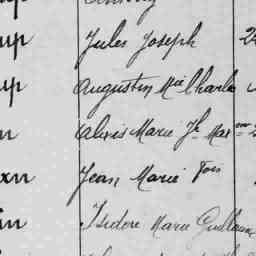 up Jules Joseph 2
up Augustin Mie Charles
n Alexis Marie Jh Mar
xu Jean Marie Fois
in Isidore Marie Guillaume